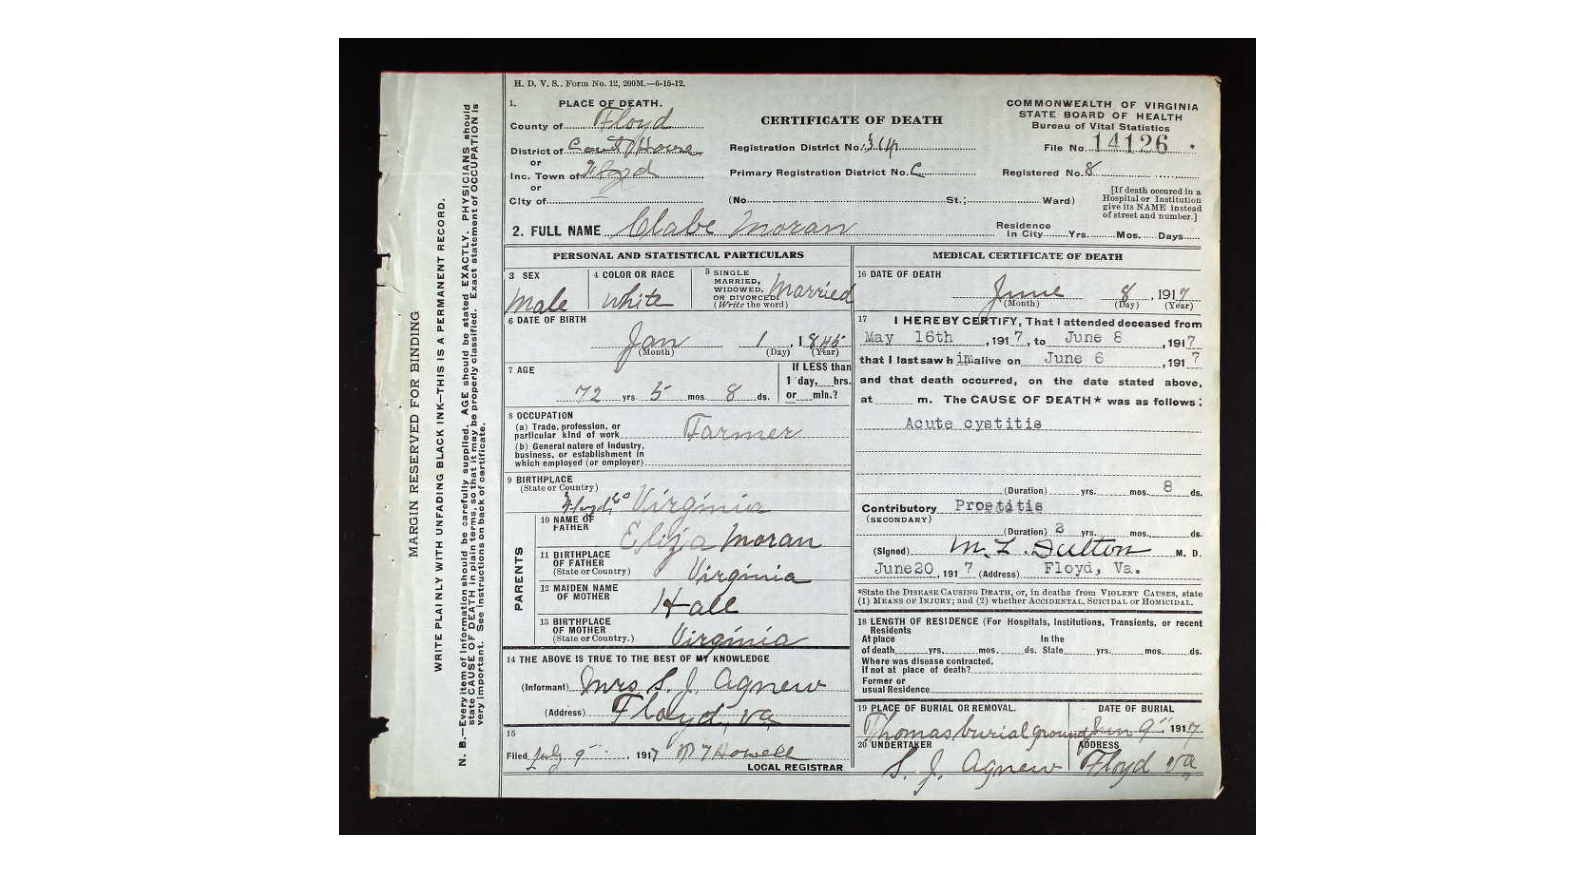 H. D. V. S.. Form No. 12, 200M.—6-15-12.
1. PLACE OF DEATH.
County of Floyd
District of Court House
or
Inc. Town of Floyd
or
City of
CERTIFICATE OF DEATH
Registration District No.
Primary Registration District No. C
(No. St.; Ward)
COMMONWEALTH OF VIRGINIA
STATE BOARD OF HEALTH
Bureau of Vital Statistics
File No. 14126
Registered No. 8
[If death occured in a
Hospital or Institution
give its NAME instead
of street and number.]
2. FULL NAME Clabe Moran
Residence
In City Yrs. Mos. Days
PERSONAL AND STATISTICAL PARTICULARS
3 SEX
Male
4 COLOR OR RACE
White
5 SINGLE
MARRIED,
WIDOWED,
OR DIVORCED
(Write the word)
Married
6 DATE OF BIRTH
Jan 1, 1845
(Month) (Day) (Year)
7 AGE
72 yrs 5 mos. 8 ds.
If LESS than
1 day, hrs.
or min.?
8 OCCUPATION
(a) Trade, profession, or
particular kind of work Farmer
(b) General nature of Industry,
business, or establishment in
which employed (or employer)
9 BIRTHPLACE
(State or Country)
Floyd Co Virginia
PARENTS
10 NAME OF
FATHER
Eliza Moran
11 BIRTHPLACE
OF FATHER
(State or Country) Virginia
12 MAIDEN NAME
OF MOTHER
Hall
13 BIRTHPLACE
OF MOTHER
(State or Country.) Virginia
14 THE ABOVE IS TRUE TO THE BEST OF MY KNOWLEDGE
(Informant) Mrs S. J. Agnew
(Address) Floyd, Va
15
Filed July 9, 1917 Howell
LOCAL REGISTRAR
MEDICAL CERTIFICATE OF DEATH
16 DATE OF DEATH
June 8, 1917
(Month) (Day) (Year)
17 I HEREBY CERTIFY, That I attended deceased from
May 16th, 1917, to June 8, 1917
that I last saw him alive on June 6, 1917
and that death occurred, on the date stated above,
at m. The CAUSE OF DEATH* was as follows:
Acute cystitis
(Duration) yrs. mos. 8 ds.
Contributory Prostitis
(SECONDARY)
(Duration) yrs. mos. ds.
(Signed) M. L. Dalton M. D.
June20, 1917 (Address) Floyd, Va.
*State the DISEASE CAUSING DEATH, or, in deaths from VIOLENT CAUSES, state
(1) MEANS OF INJURY; and (2) whether ACCIDENTAL, SUICIDAL or HOMICIDAL.
18 LENGTH OF RESIDENCE (For Hospitals, Institutions, Transients, or recent
Residents
At place In the
of death yrs. mos. ds. State yrs. mos. ds.
Where was disease contracted,
if not at place of death?
Former or
usual Residence
19 PLACE OF BURIAL OR REMOVAL.
Thomas burial ground
DATE OF BURIAL
Jun 9", 1917
20 UNDERTAKER
S. J. Agnew
ADDRESS
Floyd Va
MARGIN RESERVED FOR BINDING
WRITE PLAINLY WITH UNFADING BLACK INK—THIS IS A PERMANENT RECORD.
N. B.—Every item of information should be carefully supplied. AGE should be stated EXACTLY. PHYSICIANS should
state CAUSE OF DEATH in plain terms, so that it may be properly classified. Exact statement of OCCUPATION is
very important. See instructions on back of certificate.